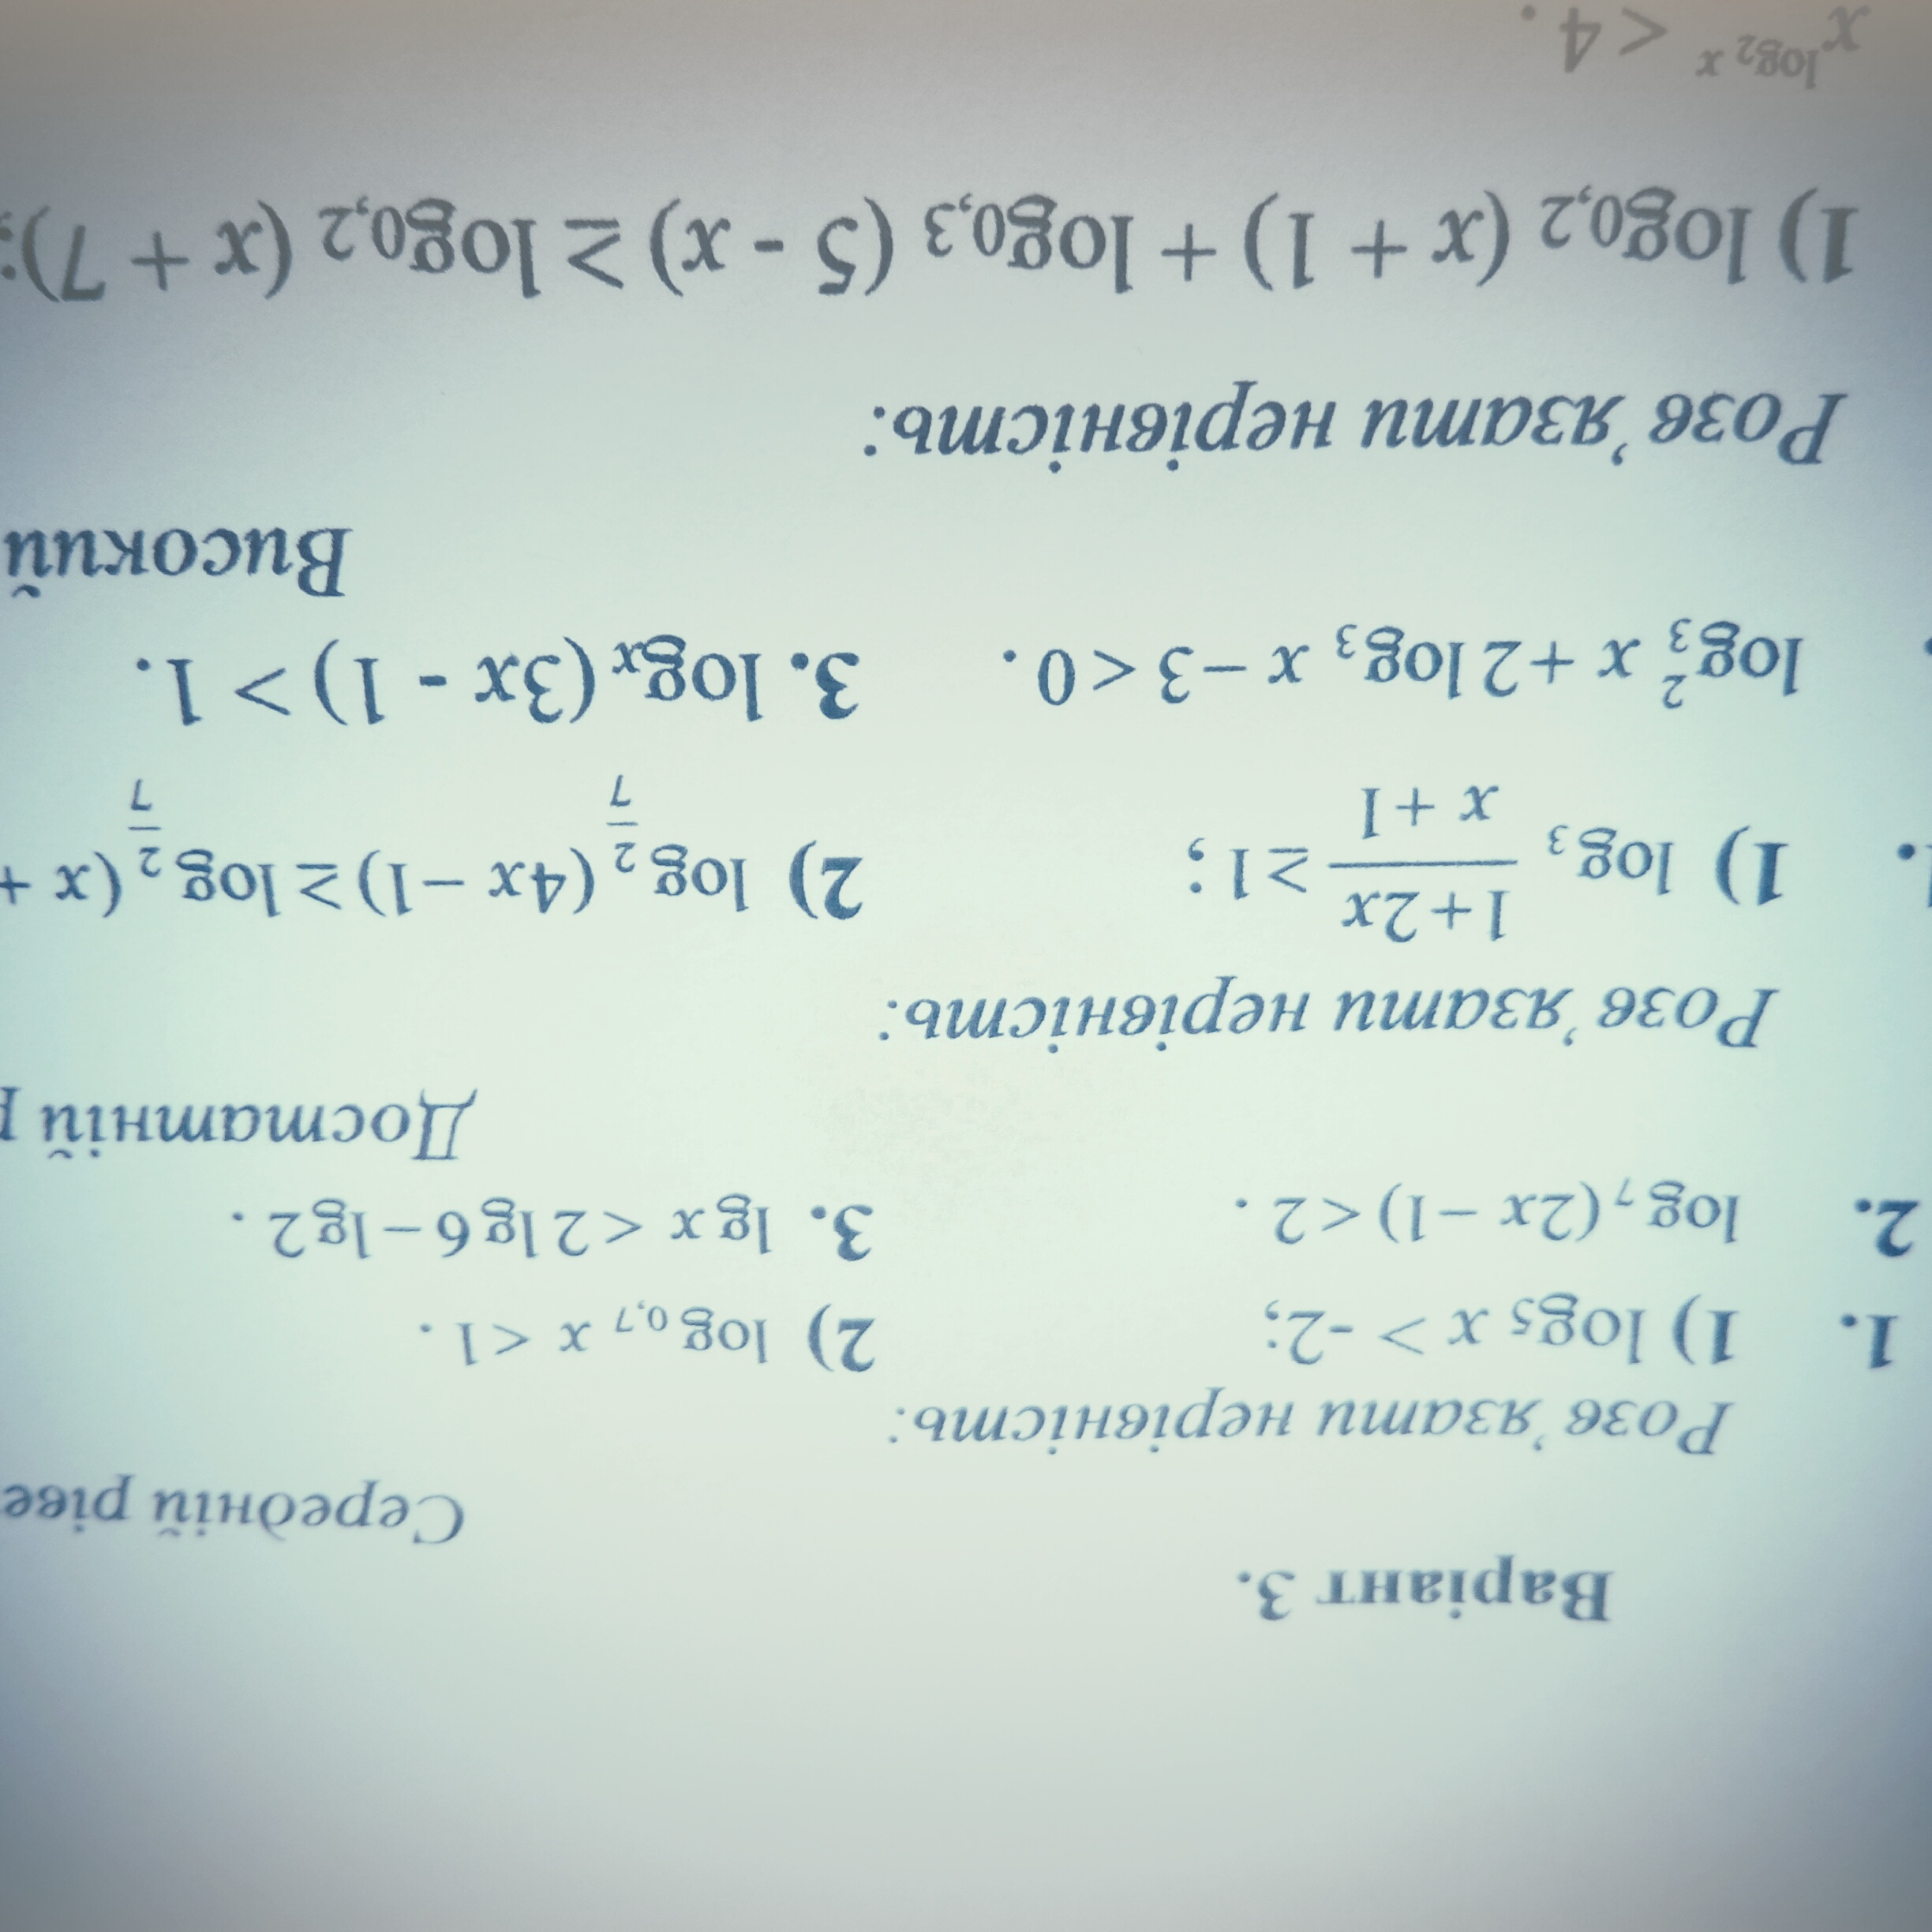 Варіант 3.
Середній рівe
Розв'язати нерівність:
1. 1) log₅ x > -2; 2) log₀,₇ x < 1.
2. log₇(2x − 1) < 2. 3. lg x < 2 lg 6 − lg 2.
Достатній р
Розв'язати нерівність:
1. 1) log₃ (1+2x)/(x+1) ≥ 1; 2) log_{2/7} (4x − 1) ≥ log_{2/7} (x +
log₃² x + 2 log₃ x − 3 < 0. 3. logₓ (3x - 1) > 1.
Високий
Розв'язати нерівність:
1) log₀,₂ (x + 1) + log₀,₃ (5 - x) ≥ log₀,₂ (x + 7);
x^{log₂ x} < 4.